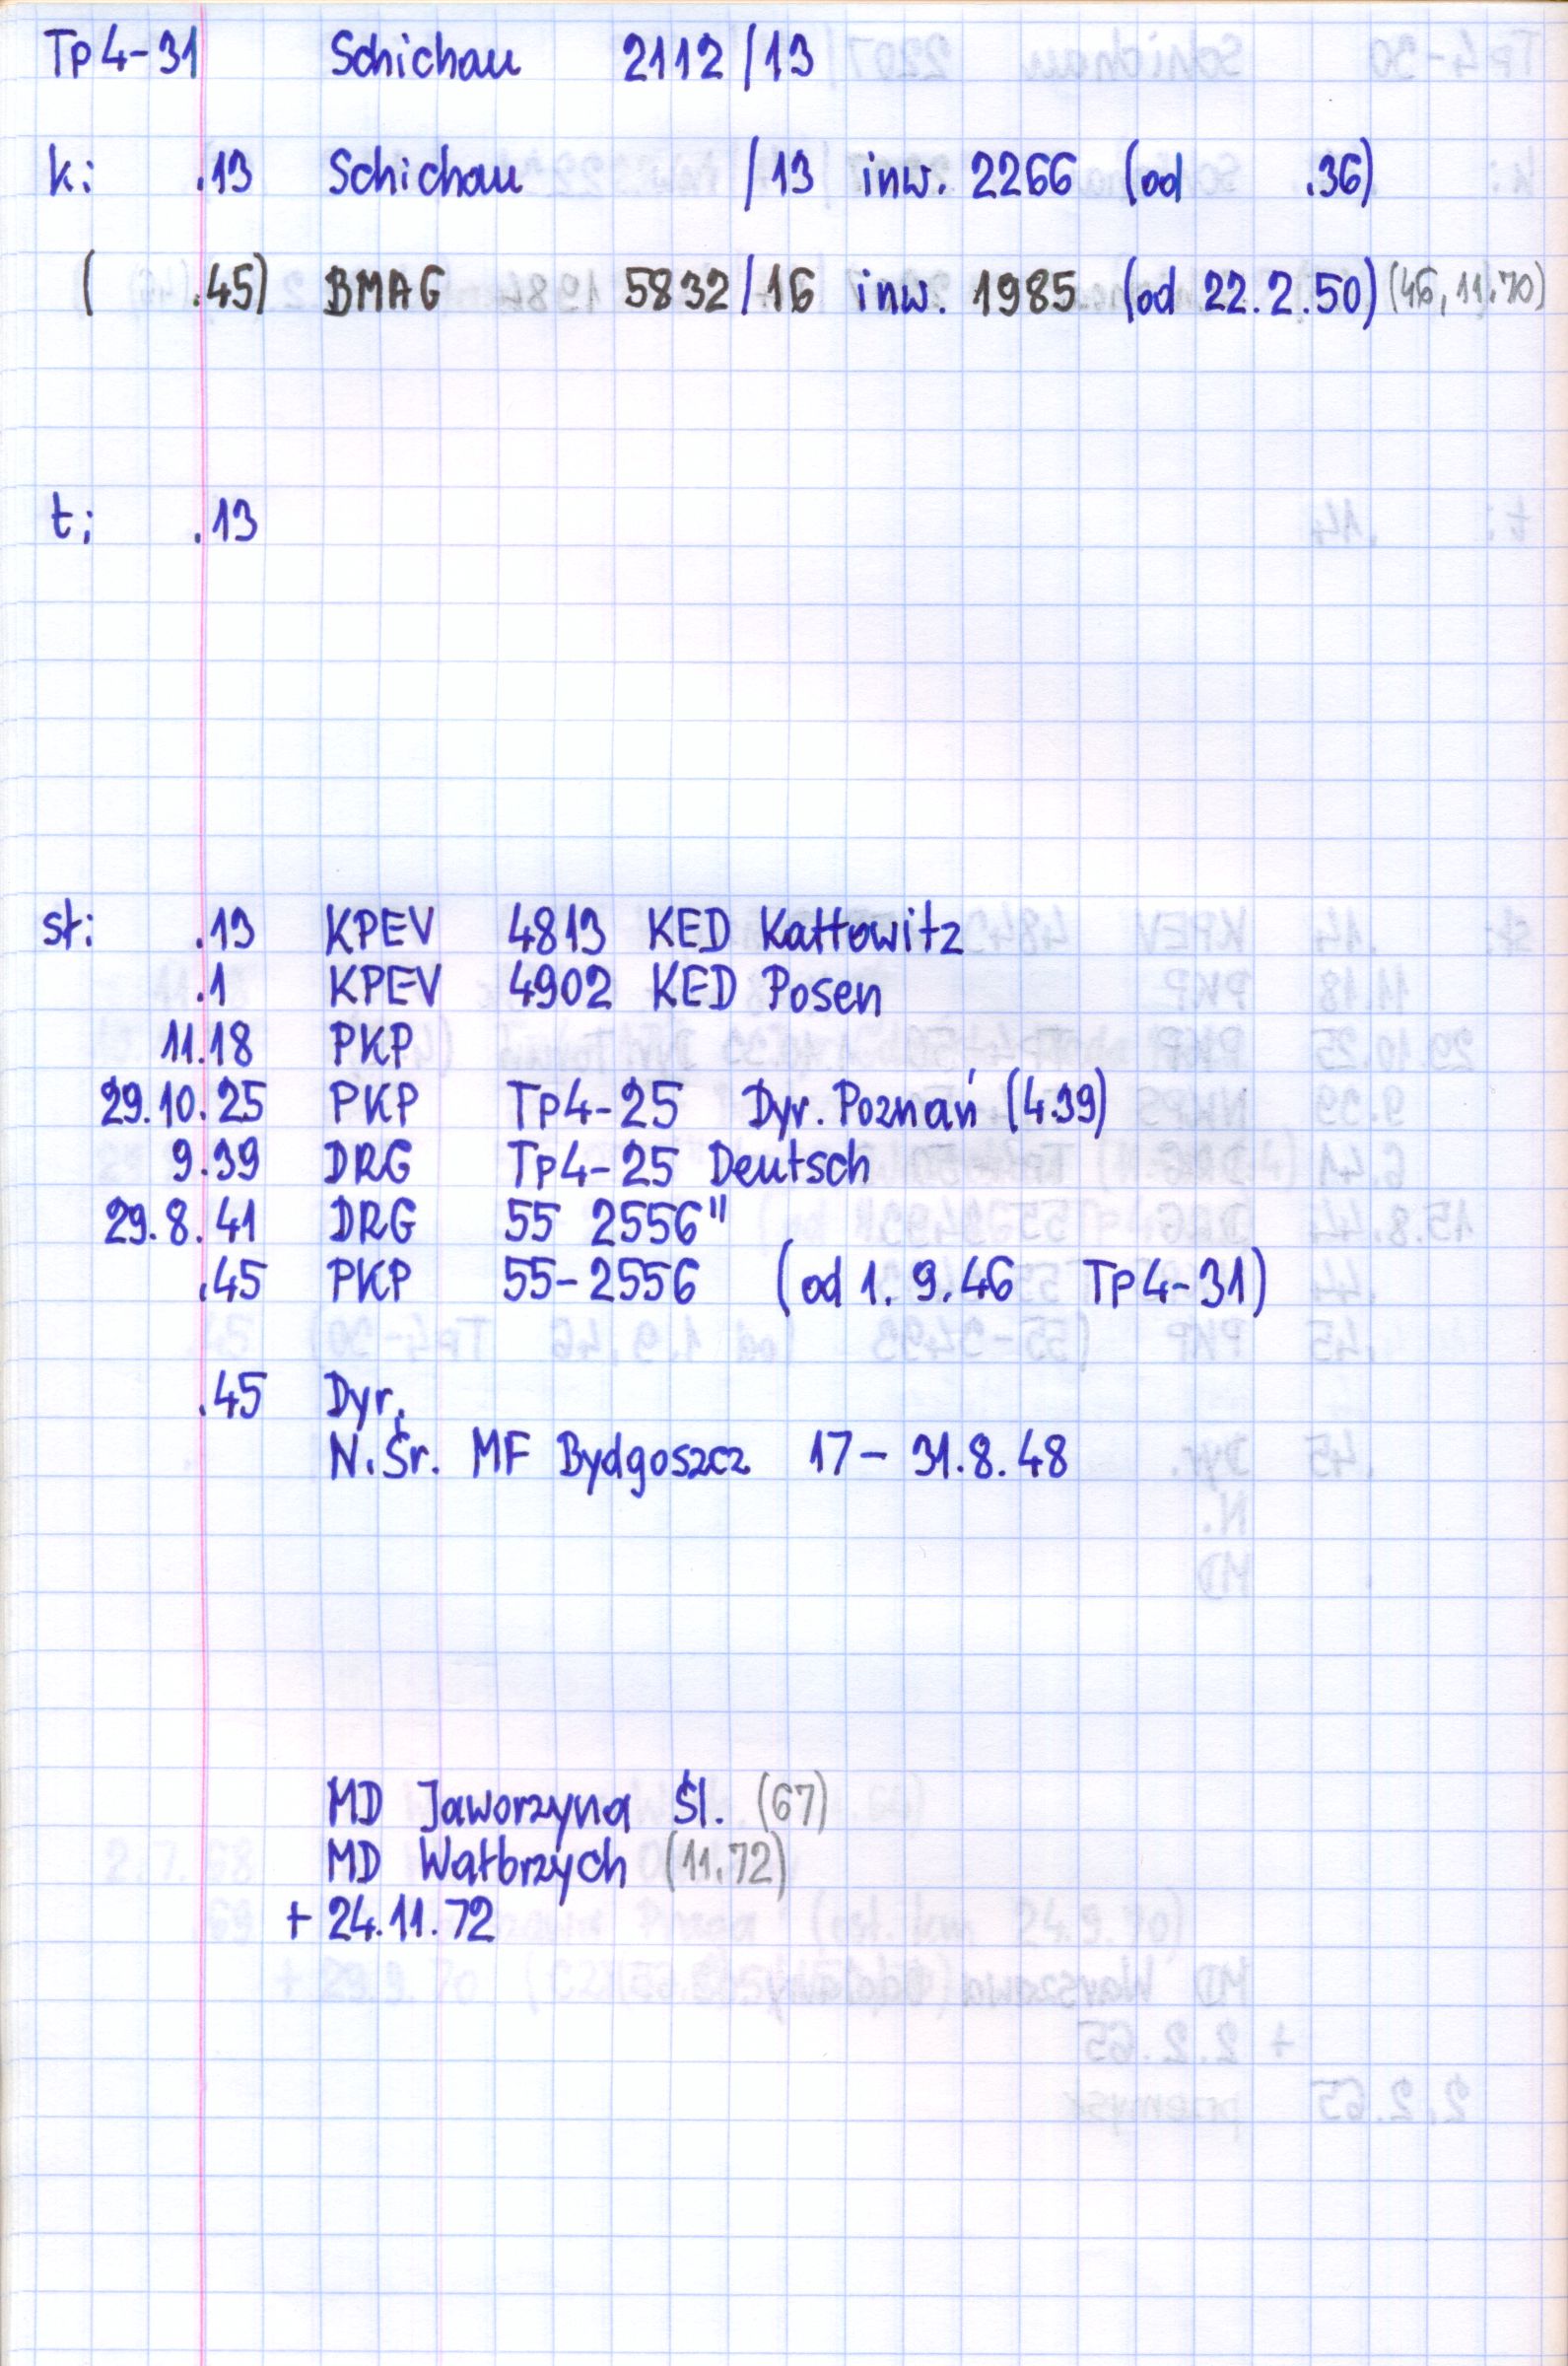 Tp4-31 Schichau 2112/13
k: .13 Schichau /13 inw. 2266 (od .36)
( .45) BMAG 5832/16 inw. 1985 (od 22.2.50) (46, 11.70)
t: .13
st: .13 KPEV 4813 KED Kattowitz
.1 KPEV 4902 KED Posen
11.18 PKP
29.10.25 PKP Tp4-25 Dyr. Poznań (4.39)
9.39 DRG Tp4-25 Deutsch
29.8.41 DRG 55 2556"
.45 PKP 55-2556 (od 1.9.46 Tp4-31)
.45 Dyr.
N.Śr. MF Bydgoszcz 17-31.8.48
MD Jaworzyna Śl. (67)
MD Wałbrzych (11.72)
+ 24.11.72